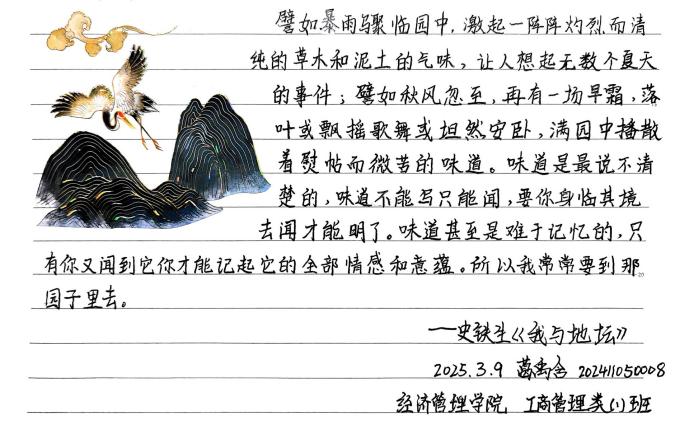 譬如暴雨骤临园中,激起一阵阵灼烈而清
纯的草木和泥土的气味,让人想起无数个夏天
的事件;譬如秋风忽至,再有一场早霜,落
叶或飘摇歌舞或坦然安卧,满园中播散
着熨帖而微苦的味道。味道是最说不清
楚的,味道不能写只能闻,要你身临其境
去闻才能明了。味道甚至是难于记忆的,只
有你又闻到它你才能记起它的全部情感和意蕴。所以我常常要到那
园子里去。
——史铁生《我与地坛》
2025.3.9 202411050008
经济管理学院 工商管理类(1)班